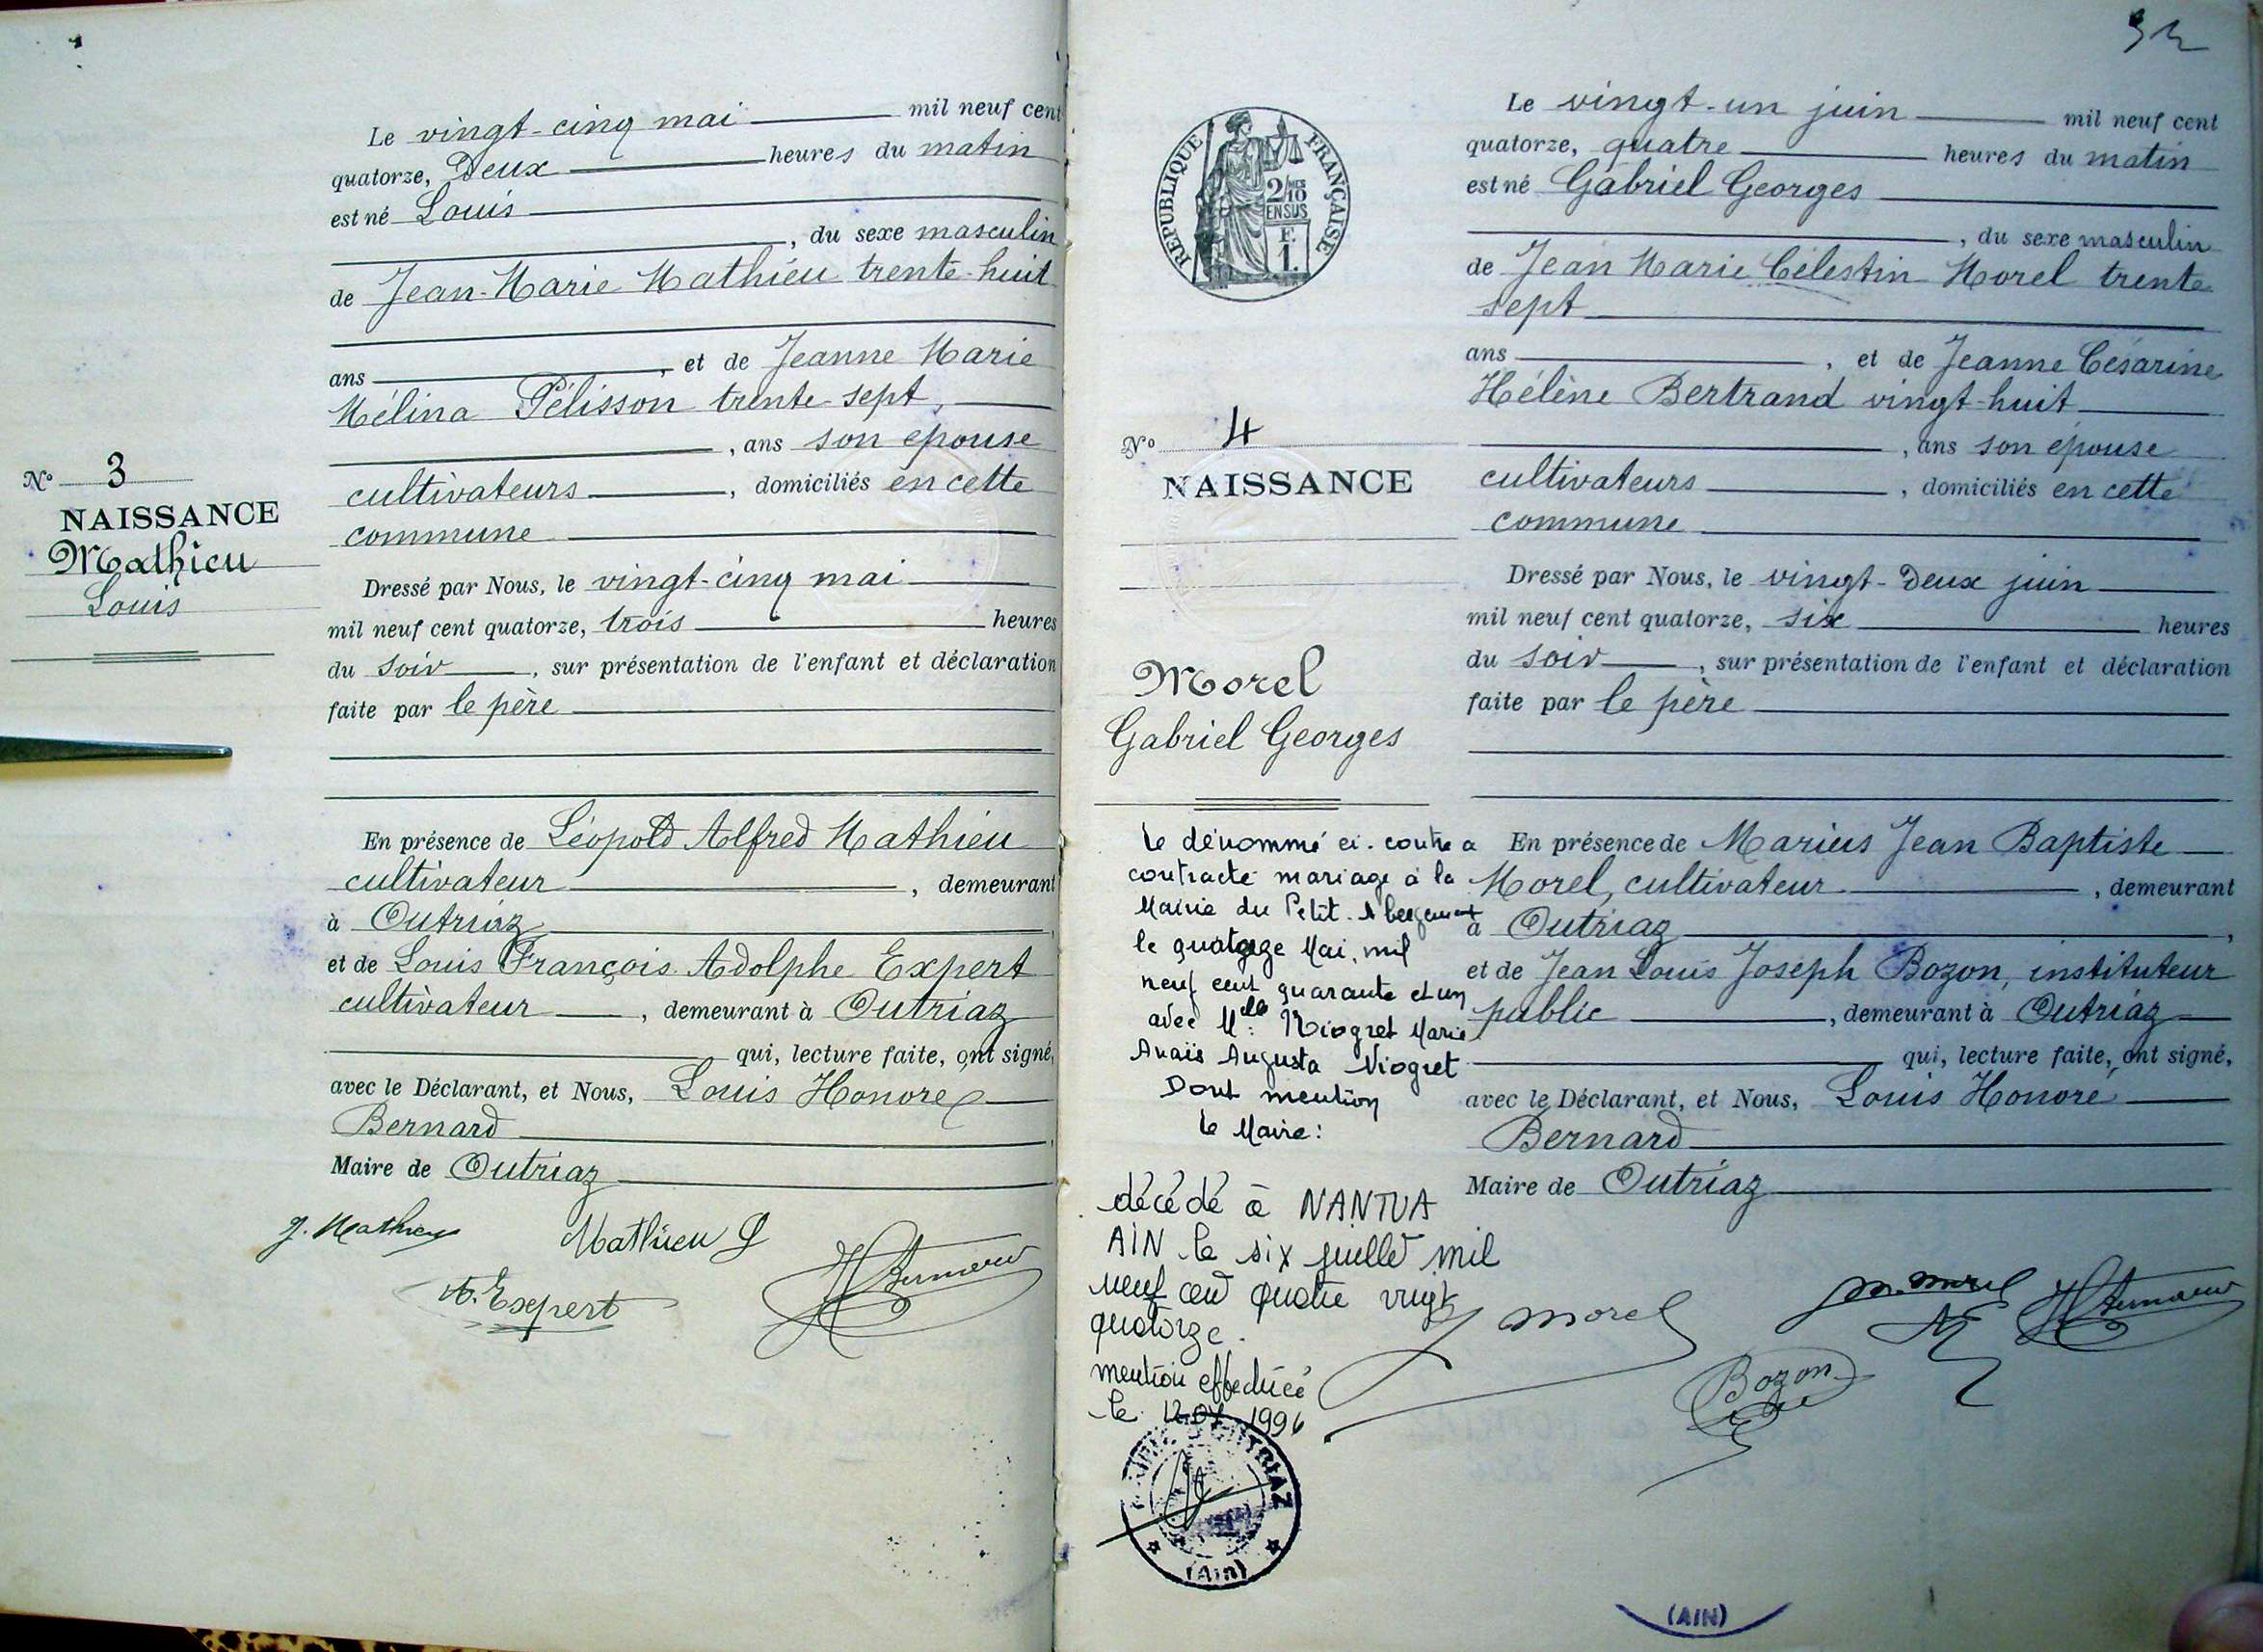 Le vingt-cinq mai mil neuf cent
quatorze, Deux heures du matin
est né Louis
, du sexe masculin
de Jean-Marie Mathieu trente-huit
ans , et de Jeanne Marie
Mélina Pélisson trente-sept,
, ans son épouse
cultivateurs , domiciliés en cette
commune
No 3
NAISSANCE
Mathieu
Louis
Dressé par Nous, le vingt-cinq mai
mil neuf cent quatorze, trois heures
du soir , sur présentation de l'enfant et déclaration
faite par le père
En présence de Léopold Alfred Mathieu
cultivateur , demeurant
à Outriaz ,
et de Louis François Adolphe Expert
cultivateur , demeurant à Outriaz
qui, lecture faite, ont signé,
avec le Déclarant, et Nous, Louis Honoré
Bernard ,
Maire de Outriaz
J. Mathieu Mathieu L
A. Expert HBernard
32
RÉPUBLIQUE FRANÇAISE
2/10 MES
EN SUS
F.
1.
Le vingt-un juin mil neuf cent
quatorze, quatre heures du matin
est né Gabriel Georges
, du sexe masculin
de Jean Marie Célestin Morel trente
sept
ans , et de Jeanne Césarine
Hélène Bertrand vingt-huit
, ans son épouse
cultivateurs , domiciliés en cette
commune
No 4
NAISSANCE
Morel
Gabriel Georges
Dressé par Nous, le vingt-Deux juin
mil neuf cent quatorze, six heures
du soir , sur présentation de l'enfant et déclaration
faite par le père
En présence de Marius Jean Baptiste
Morel, cultivateur , demeurant
à Outriaz ,
et de Jean Louis Joseph Bozon, instituteur
public , demeurant à Outriaz
qui, lecture faite, ont signé,
avec le Déclarant, et Nous, Louis Honoré
Bernard
Maire de Outriaz
Le dénommé ci-contre a
contracté mariage à la
Mairie du Petit-Abergement
le quatorze Mai, mil
neuf cent quarante et un
avec Mlle Niogret Marie
Anaïs Augusta Niogret
Dont mention
Le Maire:
décédé à NANTUA
AIN le six juillet mil
neuf cent quatre vingt
quatorze.
mention effectuée
le 12.07 1996
J Morel M. Morel HBernard
Bozon
MAIRIE D'OUTRIAZ
(Ain)
(AIN)